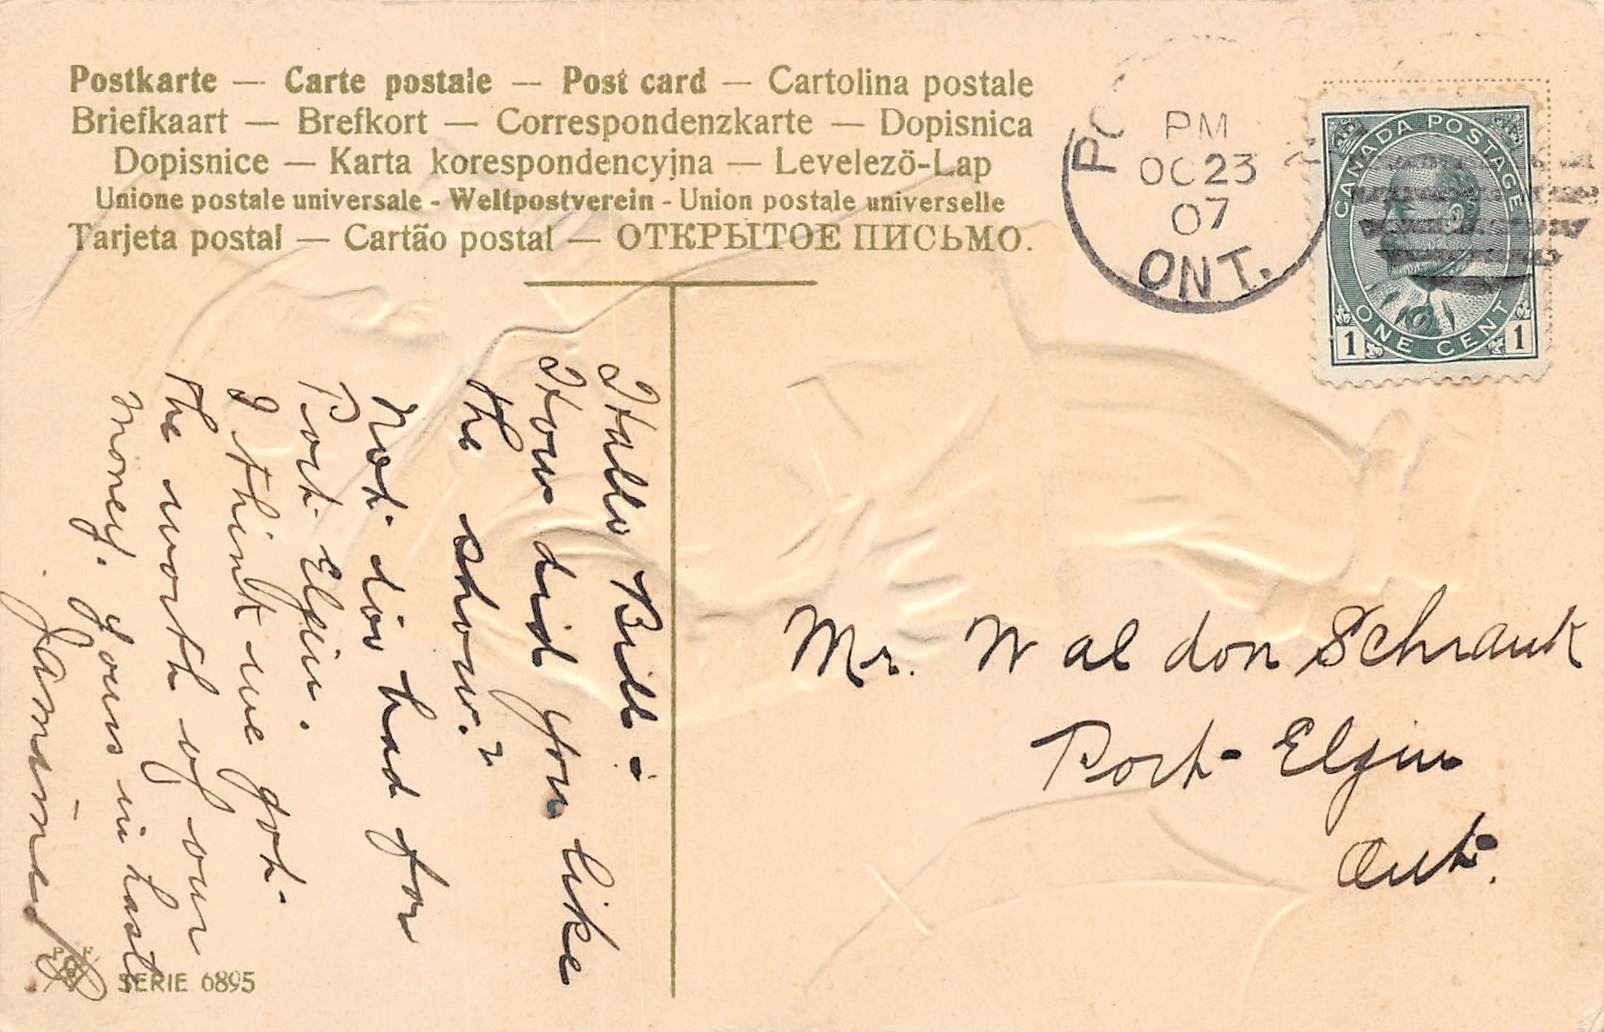 Postkarte — Carte postale — Post card — Cartolina postale
Briefkaart — Brefkort — Correspondenzkarte — Dopisnica
Dopisnice — Karta korespondencyjna — Levelezö-Lap
Unione postale universale - Weltpostverein - Union postale universelle
Tarjeta postal — Cartão postal — ОТКРЫТОЕ ПИСЬМО.
PM
OC 23
07
ONT.
CANADA POSTAGE
ONE CENT
1 1
Hallo Bill -
How did you like
the show?
Not too bad for
Port Elgin.
I think we got
the worth of our
money. Yours in haste
Mr. Waldon Schrank
Port Elgin
Ont.
P F
SERIE 6895